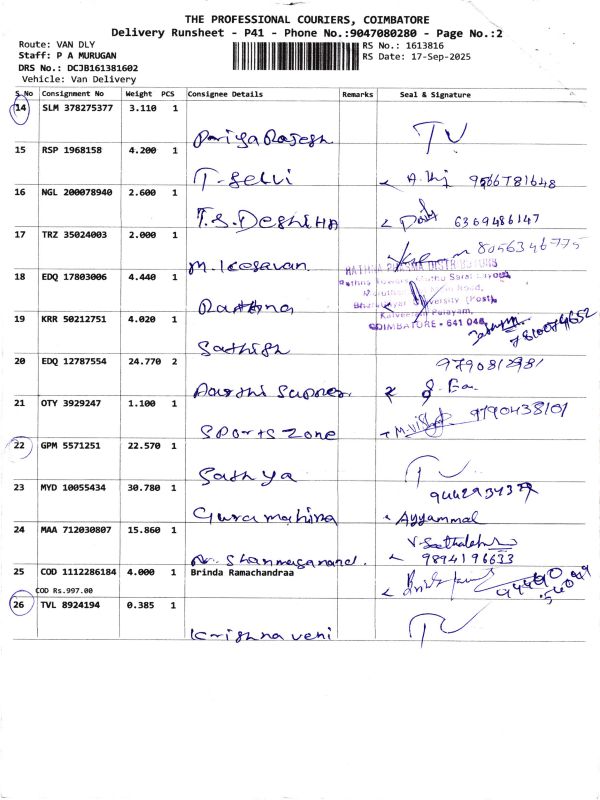 THE PROFESSIONAL COURIERS, COIMBATORE
Delivery Runsheet - P41 - Phone No.:9047080280 - Page No.:2
Route: VAN DLY
RS No.: 1613816
Staff: P A MURUGAN
RS Date: 17-Sep-2025
DRS No.: DCJB161381602
Vehicle: Van Delivery
S.No Consignment No Weight PCS Consignee Details Remarks Seal & Signature
14 SLM 378275377 3.110 1
Priya Rajesh
15 RSP 1968158 4.200 1
T. Selvi 9566781648
16 NGL 200078940 2.600 1
T.S. Deshiha 6369486147
17 TRZ 35024003 2.000 1
M. Kesavan 8056346775
18 EDQ 17803006 4.440 1
Rathna
Bharathiyar University (Post),
Kalveeram Palayam,
COIMBATORE - 641 046
19 KRR 50212751 4.020 1
Sathish
20 EDQ 12787554 24.770 2
9790812981
21 OTY 3929247 1.100 1
Sports Zone 9790438101
22 GPM 5571251 22.570 1
Sathya
23 MYD 10055434 30.780 1
Ayyammal
24 MAA 712030807 15.860 1
9894196633
25 COD 1112286184 4.000 1 Brinda Ramachandraa
COD Rs.997.00
26 TVL 8924194 0.385 1
Krishnaveni